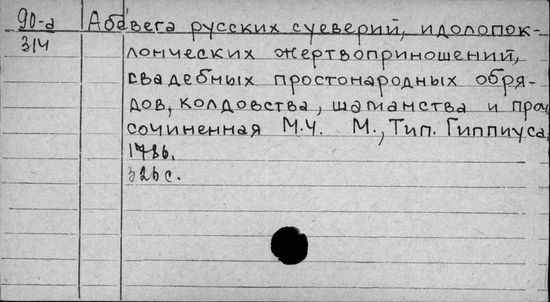 90-а Абевега русских суеверий, идолопок-
314 лонческих жертвоприношений,
свадебных простонародных обря-
дов, колдовства, шаманства и проч,
сочиненная М.Ч. М., Тип. Гиппиуса,
1786.
326 с.